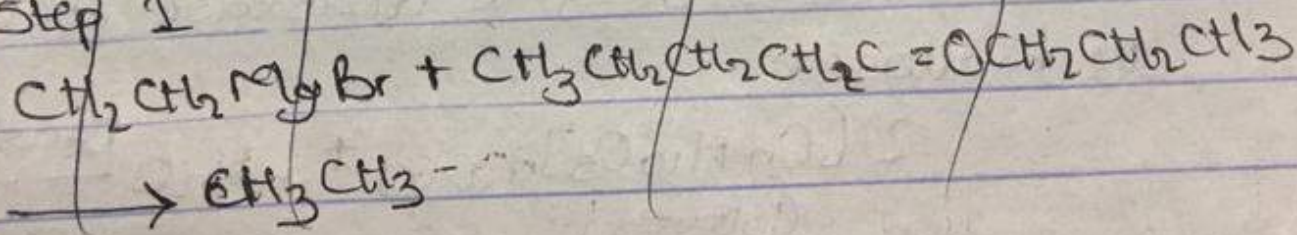 Step 1
CH₂CH₂MgBr + CH₃CH₂CH₂CH₂C=OCH₂CH₂CH3
→ CH₃CH₃-